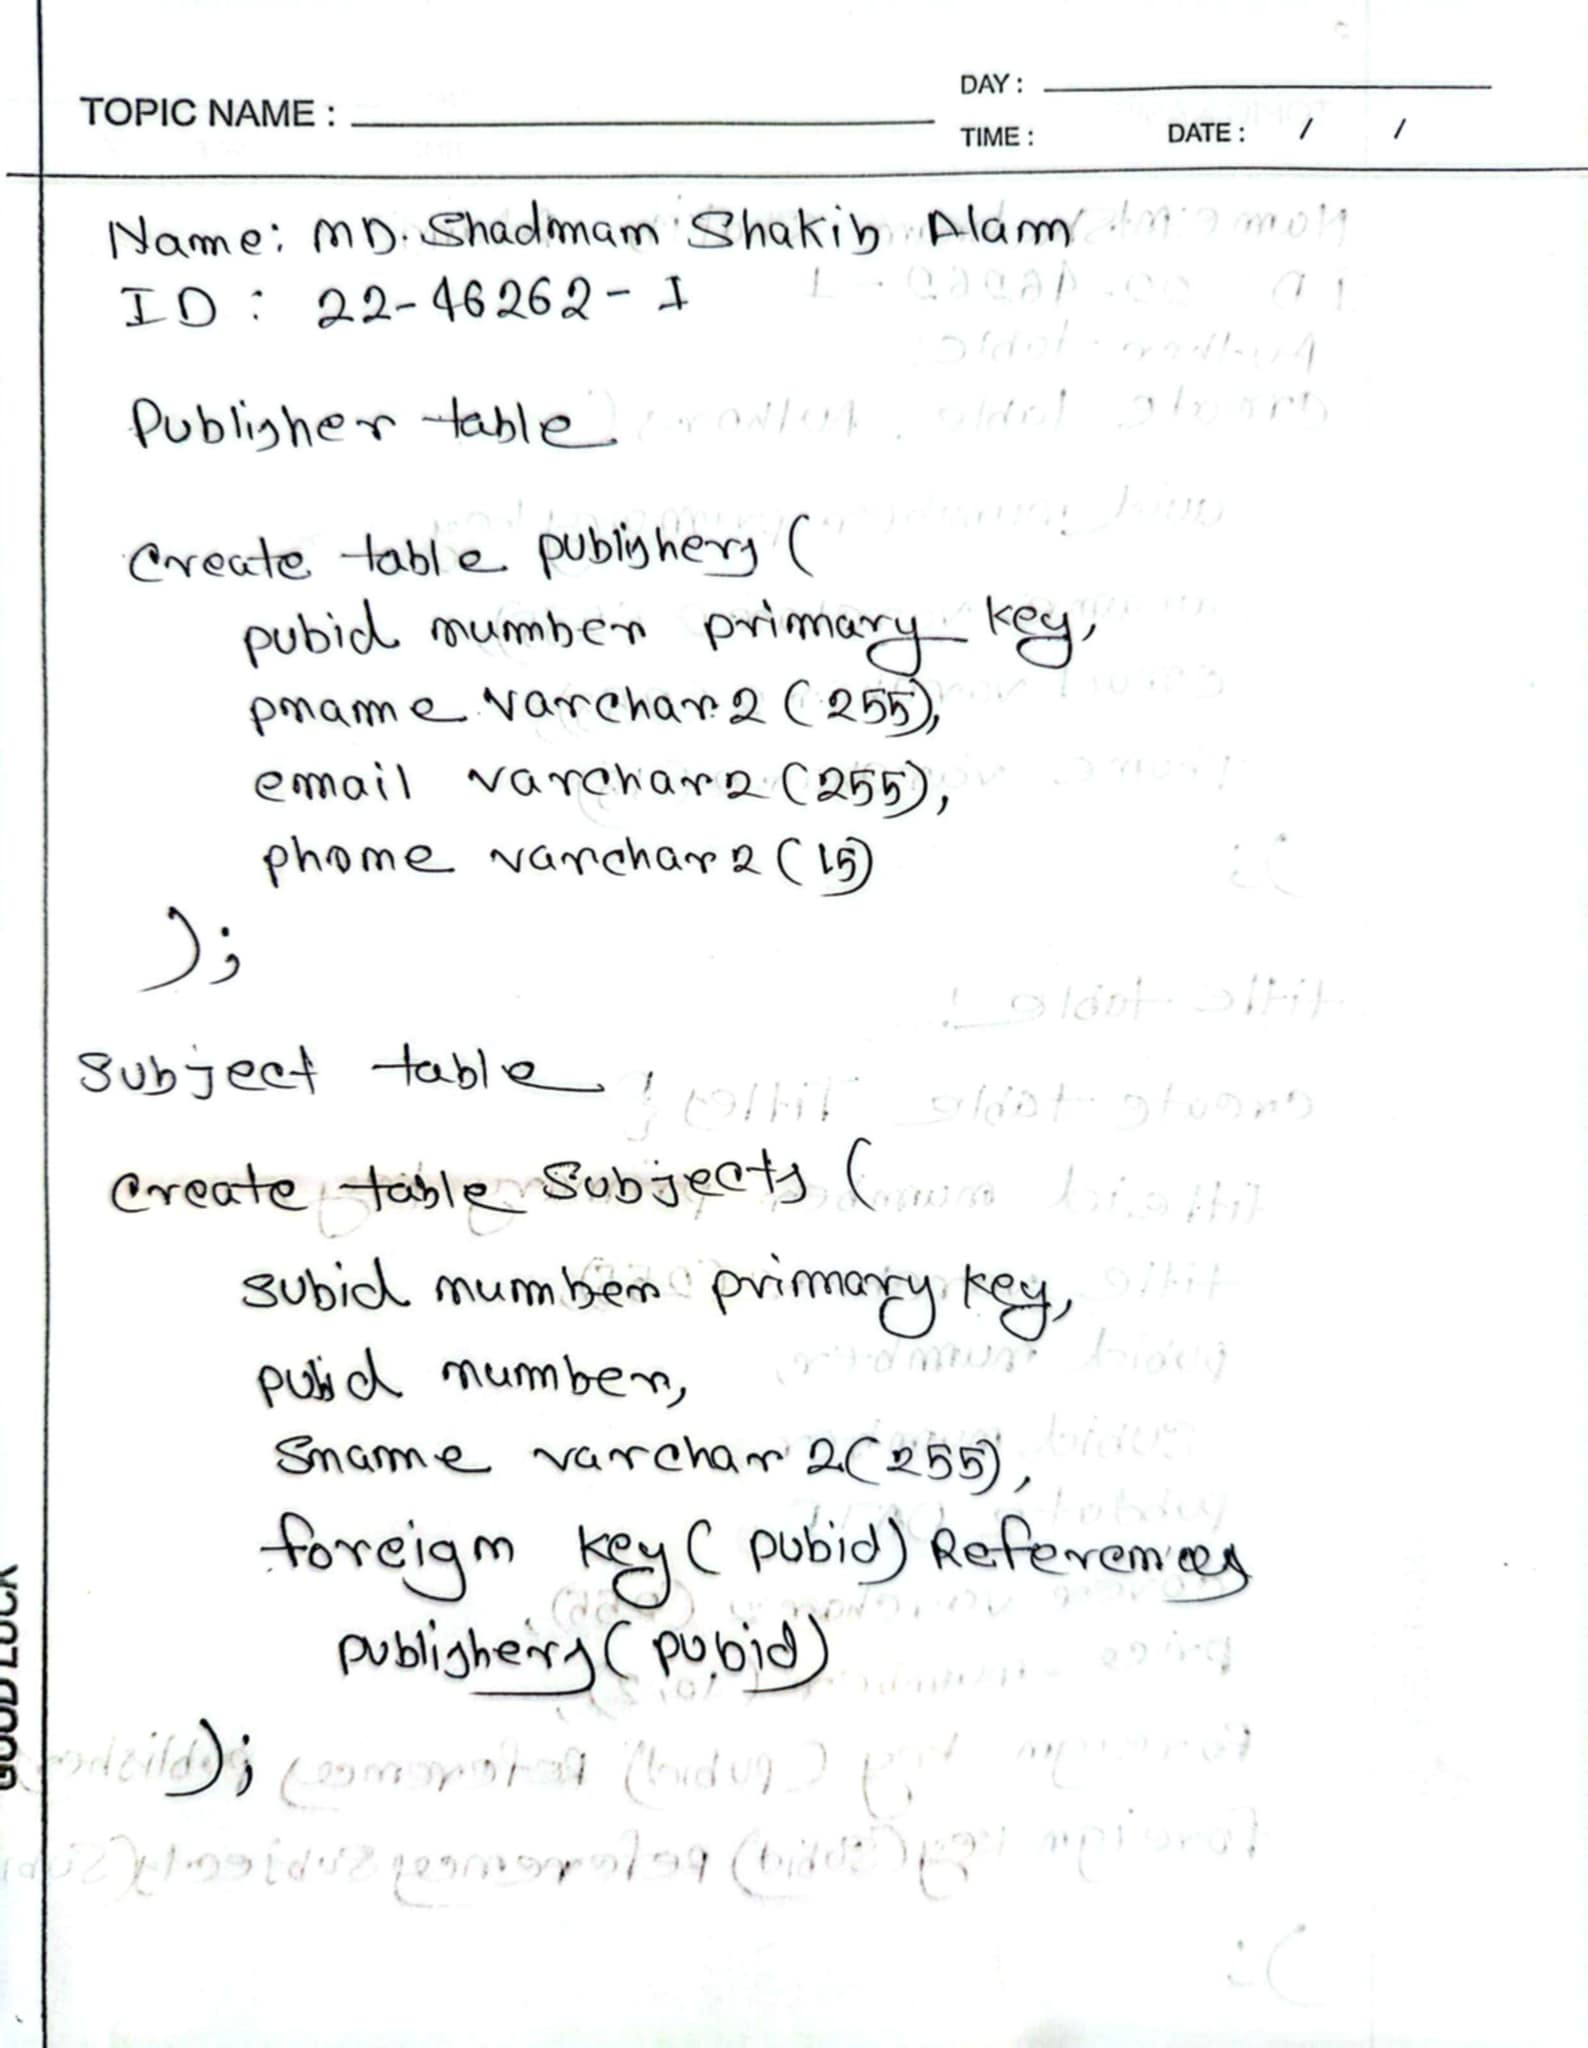 TOPIC NAME :
DAY :
TIME :
DATE : / /
Name: MD. Shadmam Shakib Alam
ID : 22-46262-1
Publisher table
Create table publishers (
pubid number primary key,
pname varchar2 (255),
email varchar2 (255),
phone varchar2 (15)
);
Subject table
Create table Subjects (
subid number primary key,
pubid number,
Sname varchar2(255),
foreign key ( pubid) References
publishers ( pubid)
);
GOOD LUCK